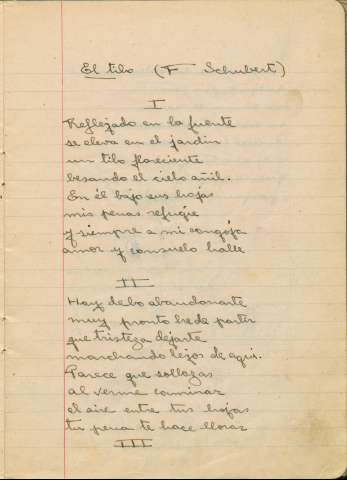 El tilo (F Schubert)
I
Reflejado en la fuente
se eleva en el jardin
un tilo floreciente
besando el cielo añil.
En él bajo sus hojas
mis penas refugie
y siempre a mi congoja
amor y consuelo halle
II
Hoy debo abandonarte
muy pronto he de partir
que tristeza dejarte
marchando lejos de aqui.
Parece que sollozas
al verme caminar
el aire entre tus hojas
tu pena te hace llorar
III